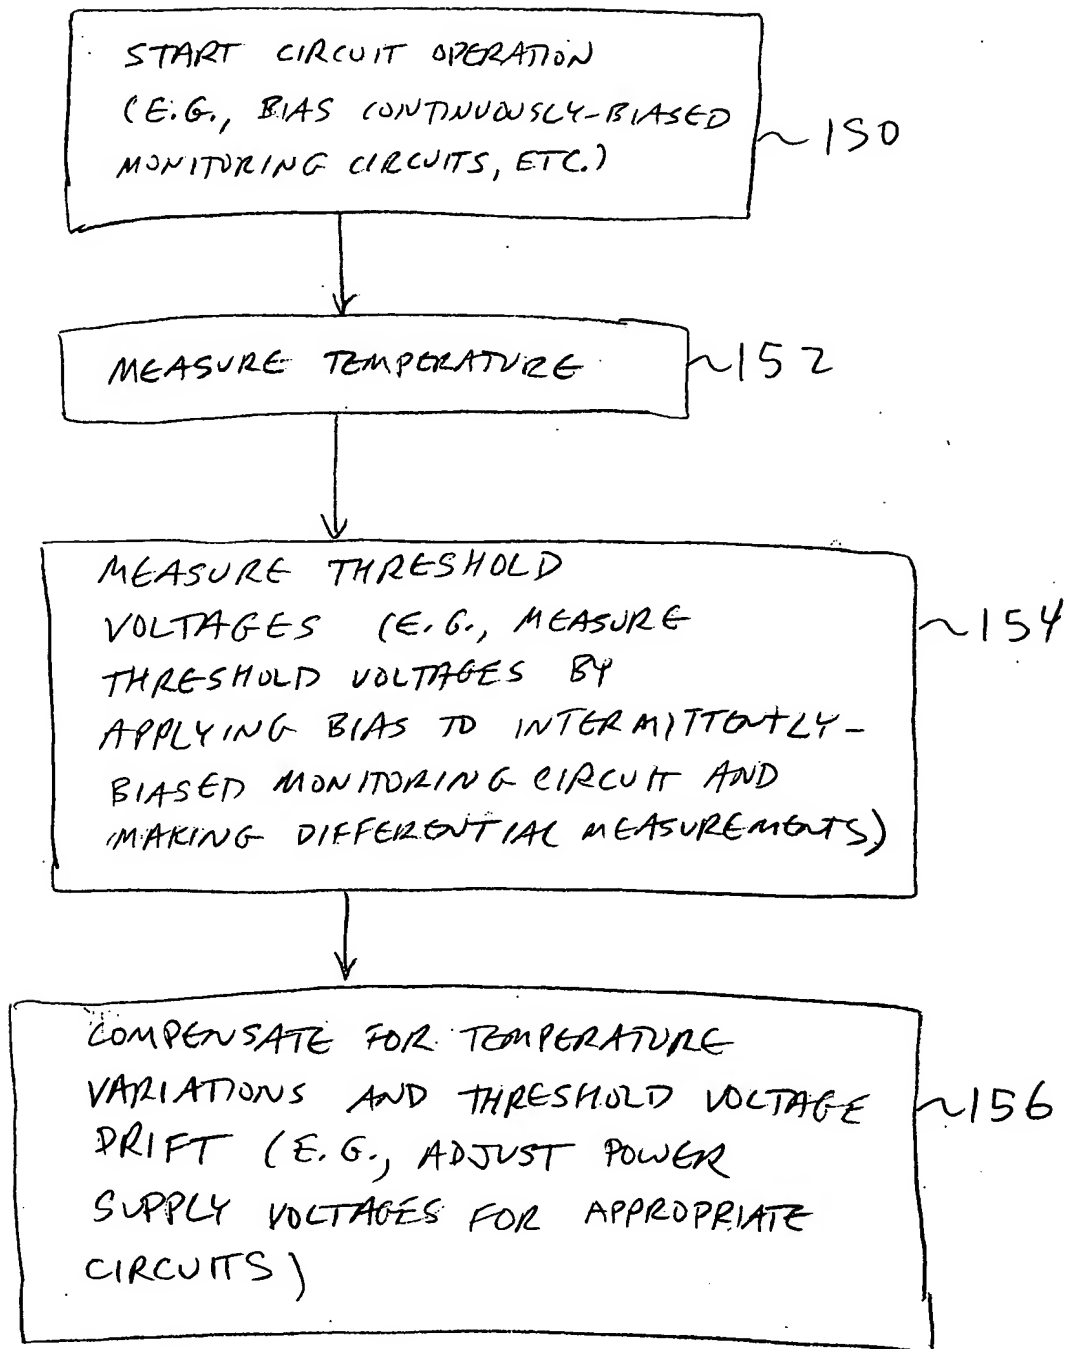 START CIRCUIT OPERATION
(E.G., BIAS CONTINUOUSLY-BIASED
MONITORING CIRCUITS, ETC.)
~150
MEASURE TEMPERATURE
~152
MEASURE THRESHOLD
VOLTAGES (E.G., MEASURE
THRESHOLD VOLTAGES BY
APPLYING BIAS TO INTERMITTENTLY-
BIASED MONITORING CIRCUIT AND
MAKING DIFFERENTIAL MEASUREMENTS)
~154
COMPENSATE FOR TEMPERATURE
VARIATIONS AND THRESHOLD VOLTAGE
DRIFT (E.G., ADJUST POWER
SUPPLY VOLTAGES FOR APPROPRIATE
CIRCUITS)
~156